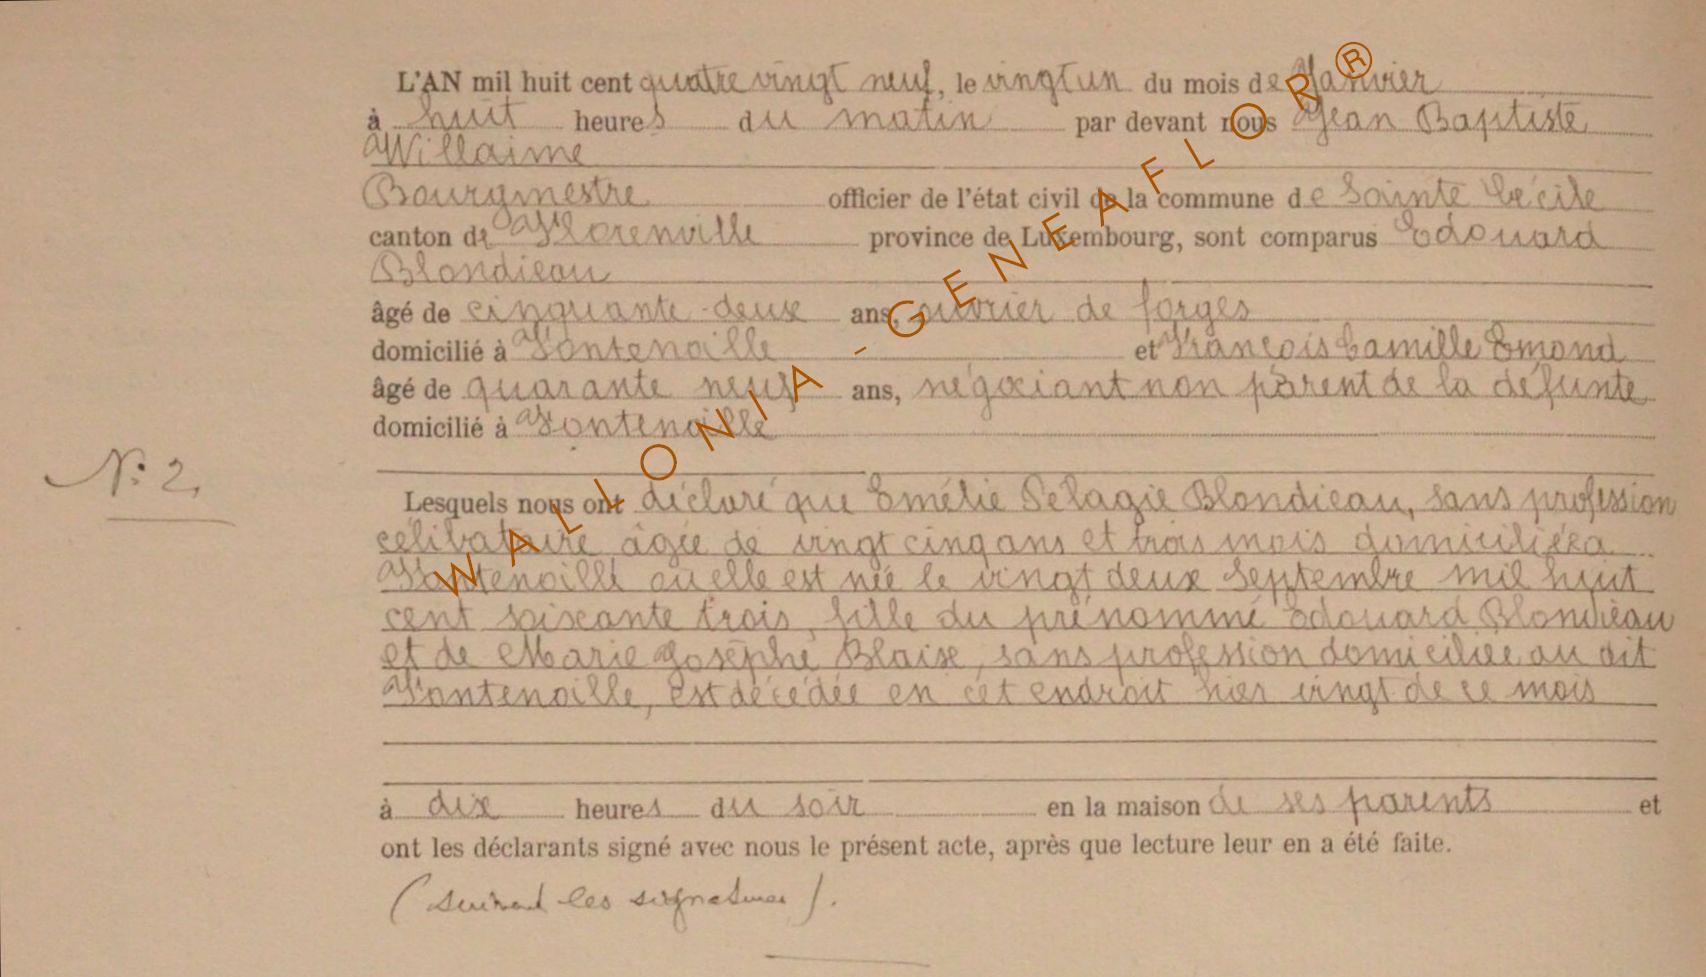 L'AN mil huit cent quatre vingt neuf, le vingt un du mois de Janvier
à huit heures du matin par devant nous Jean Baptiste
Willaime
Bourgmestre officier de l'état civil de la commune de Sainte Cécile
canton de Florenville province de Luxembourg, sont comparus Edouard
Blondieau
âgé de cinquante-deux ans, ouvrier de forges
domicilié à Fontenoille et François Camille Emond
âgé de quarante neuf ans, négociant non parent de la défunte
domicilié à Fontenoille
N: 2.
Lesquels nous ont déclaré que Emélie Pélagie Blondieau, sans profession
célibataire âgée de vingt cinq ans et trois mois domiciliée à
Fontenoille où elle est née le vingt deux Septembre mil huit
cent soixante trois, fille du prénommé Edouard Blondieau
et de Marie Josèphe Blaise, sans profession domiciliée au dit
Fontenoille, est décédée en cet endroit hier vingt de ce mois
à dix heures du soir en la maison de ses parents et
ont les déclarants signé avec nous le présent acte, après que lecture leur en a été faite.
(suivent les signatures).
WALLONIA - GENEAFLOR®